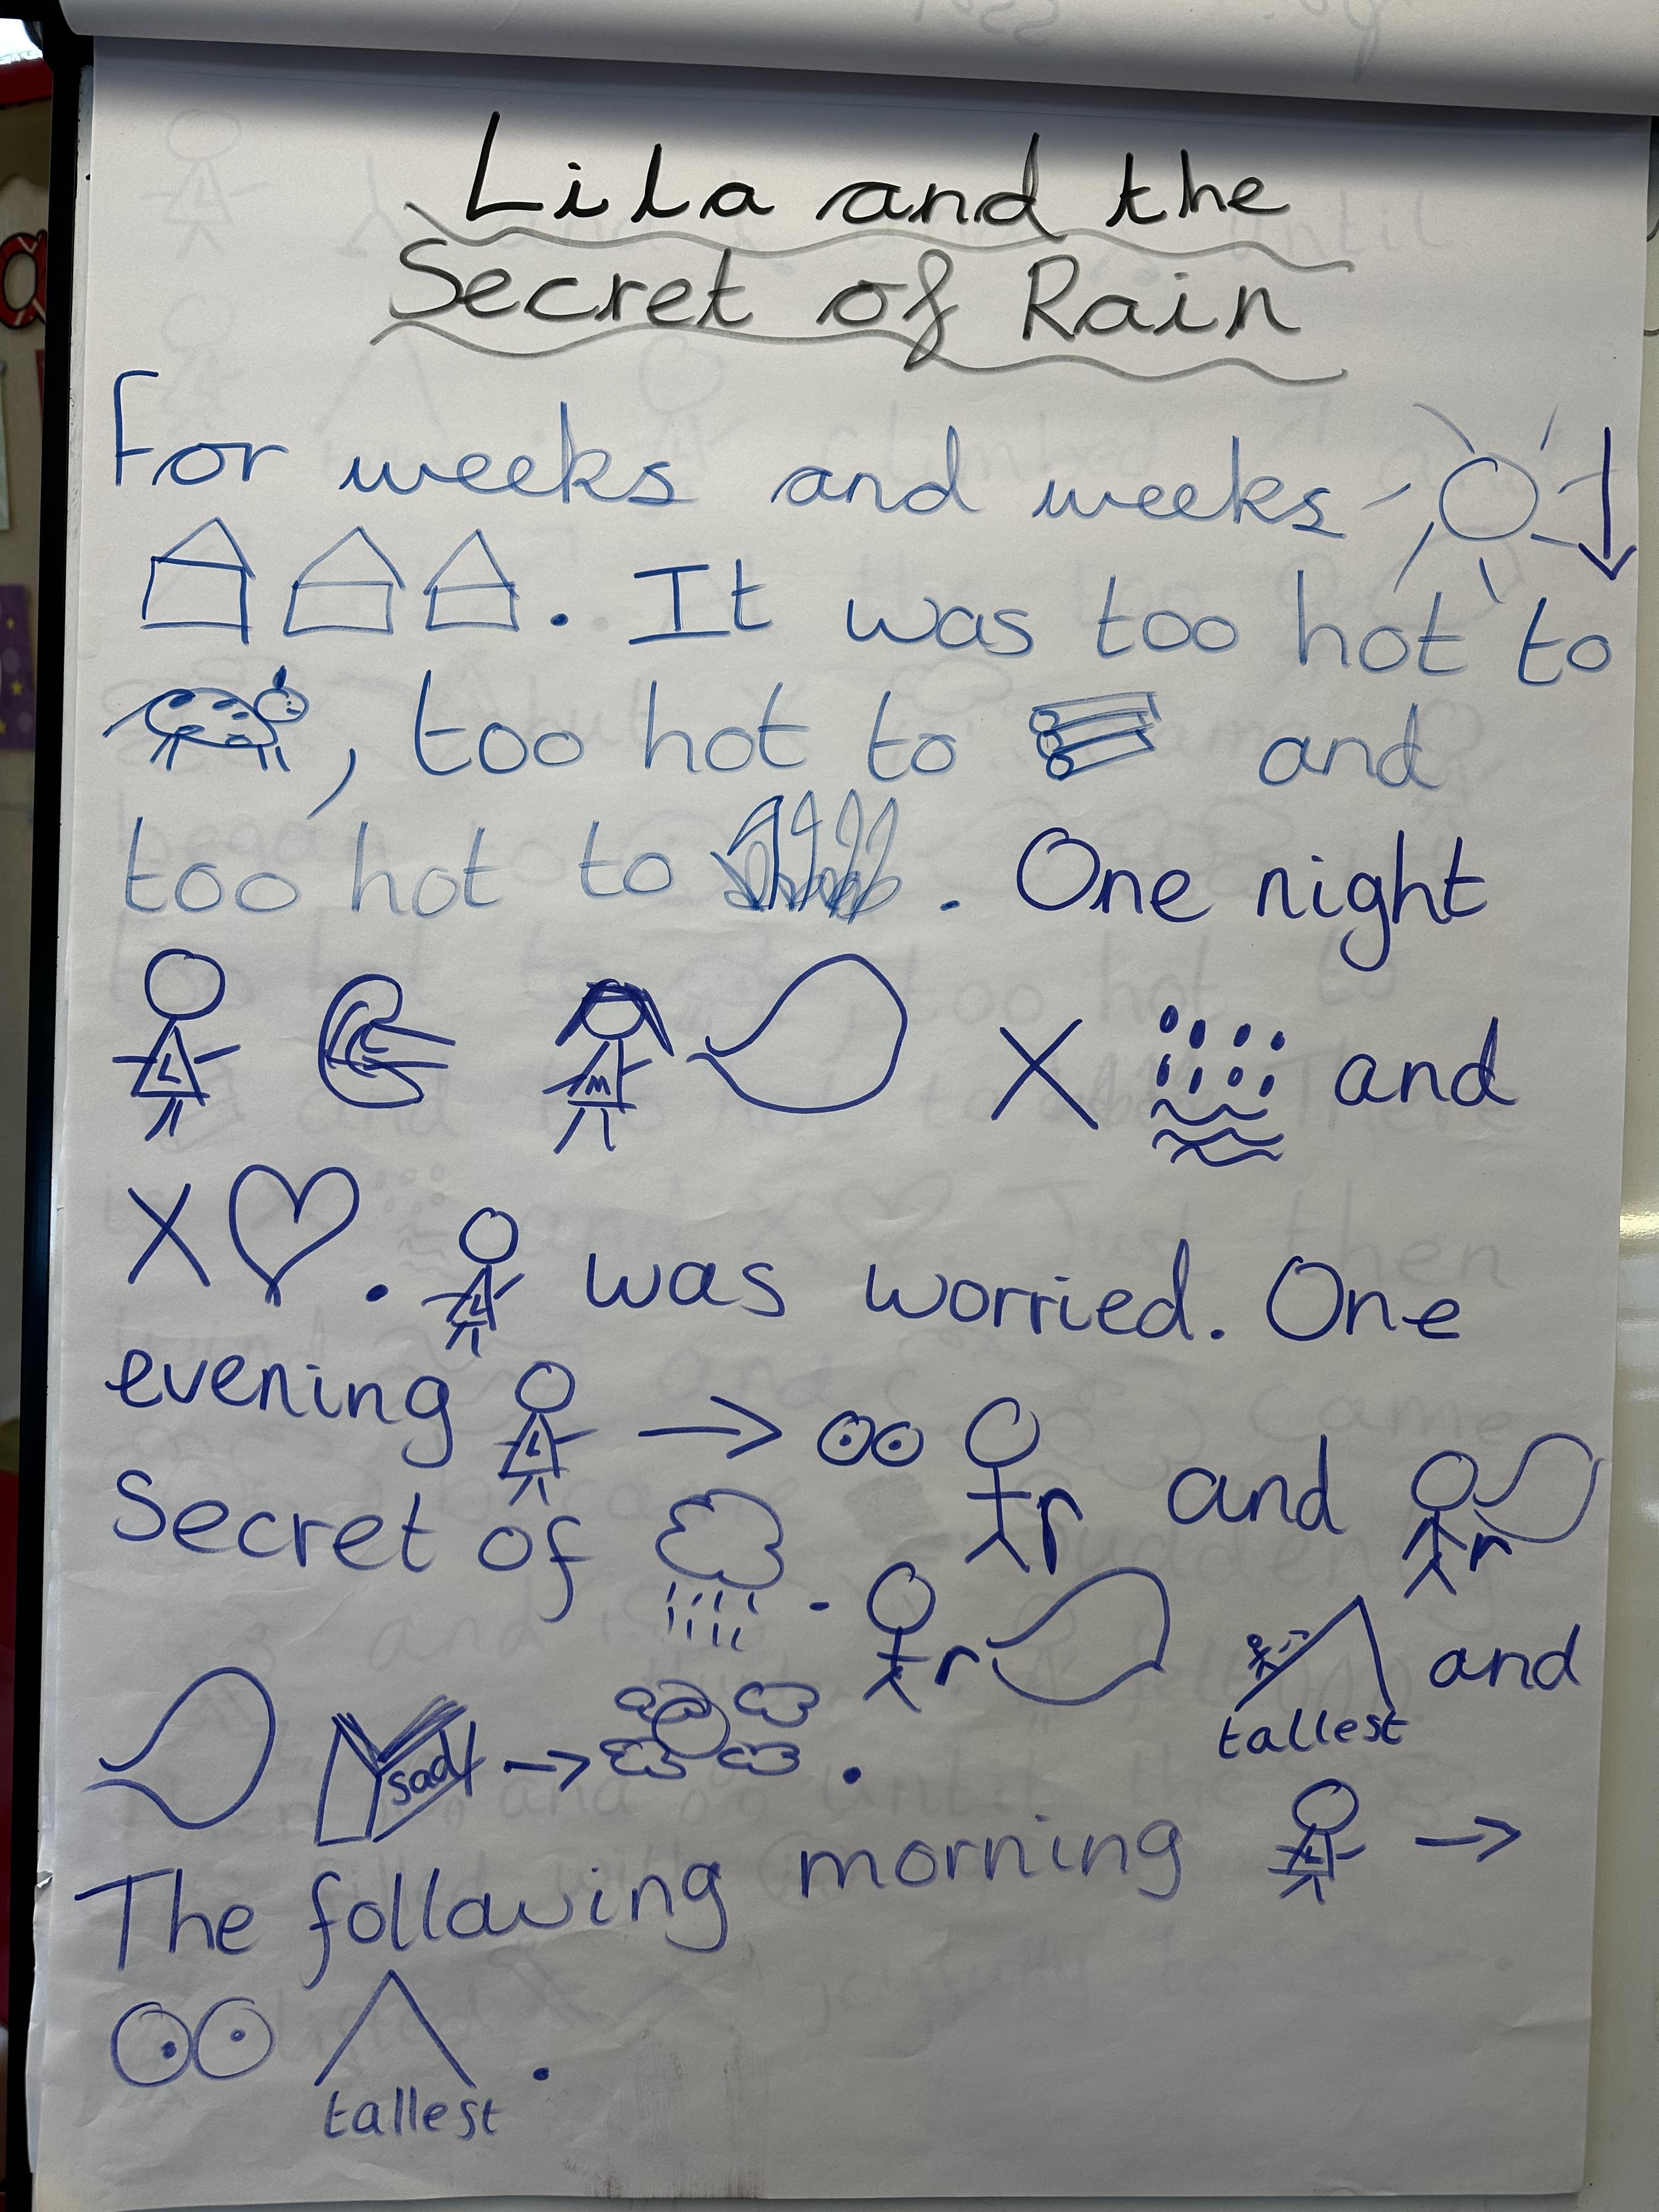 Lila and the
Secret of Rain
For weeks and weeks
. It was too hot to
, too hot to and
too hot to . One night
L M X and
X . L was worried. One
evening L and
Secret of .
and
tallest
sad .
The following morning L
.
tallest